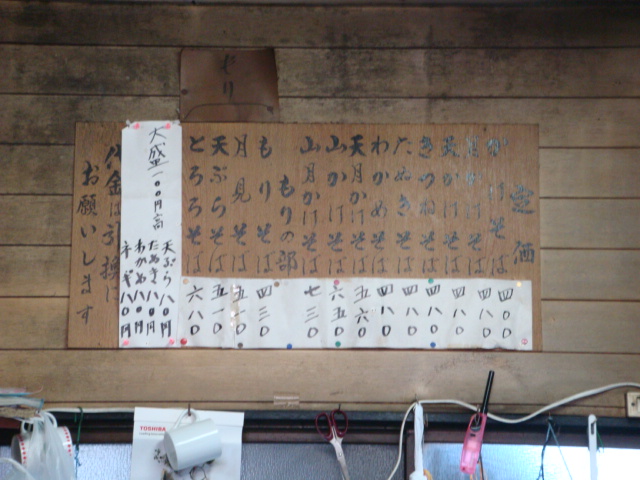 定価
かけそば 四〇〇
月かけそば 四八〇
天かけそば 四八〇
きつねそば 四八〇
たぬきそば 四八〇
わかめそば 四八〇
天月かけそば 五六〇
山かけそば 六五〇
山月かけそば 七三〇
もりの部
もりそば 四三〇
月見そば 五一〇
天ぷらそば 五一〇
とろろそば 六八〇
大盛一〇〇円高
天ぷら八〇円
たぬき八〇円
わかめ八〇円
ネギ八〇円
代金は引換に
お願いします
TOSHIBA